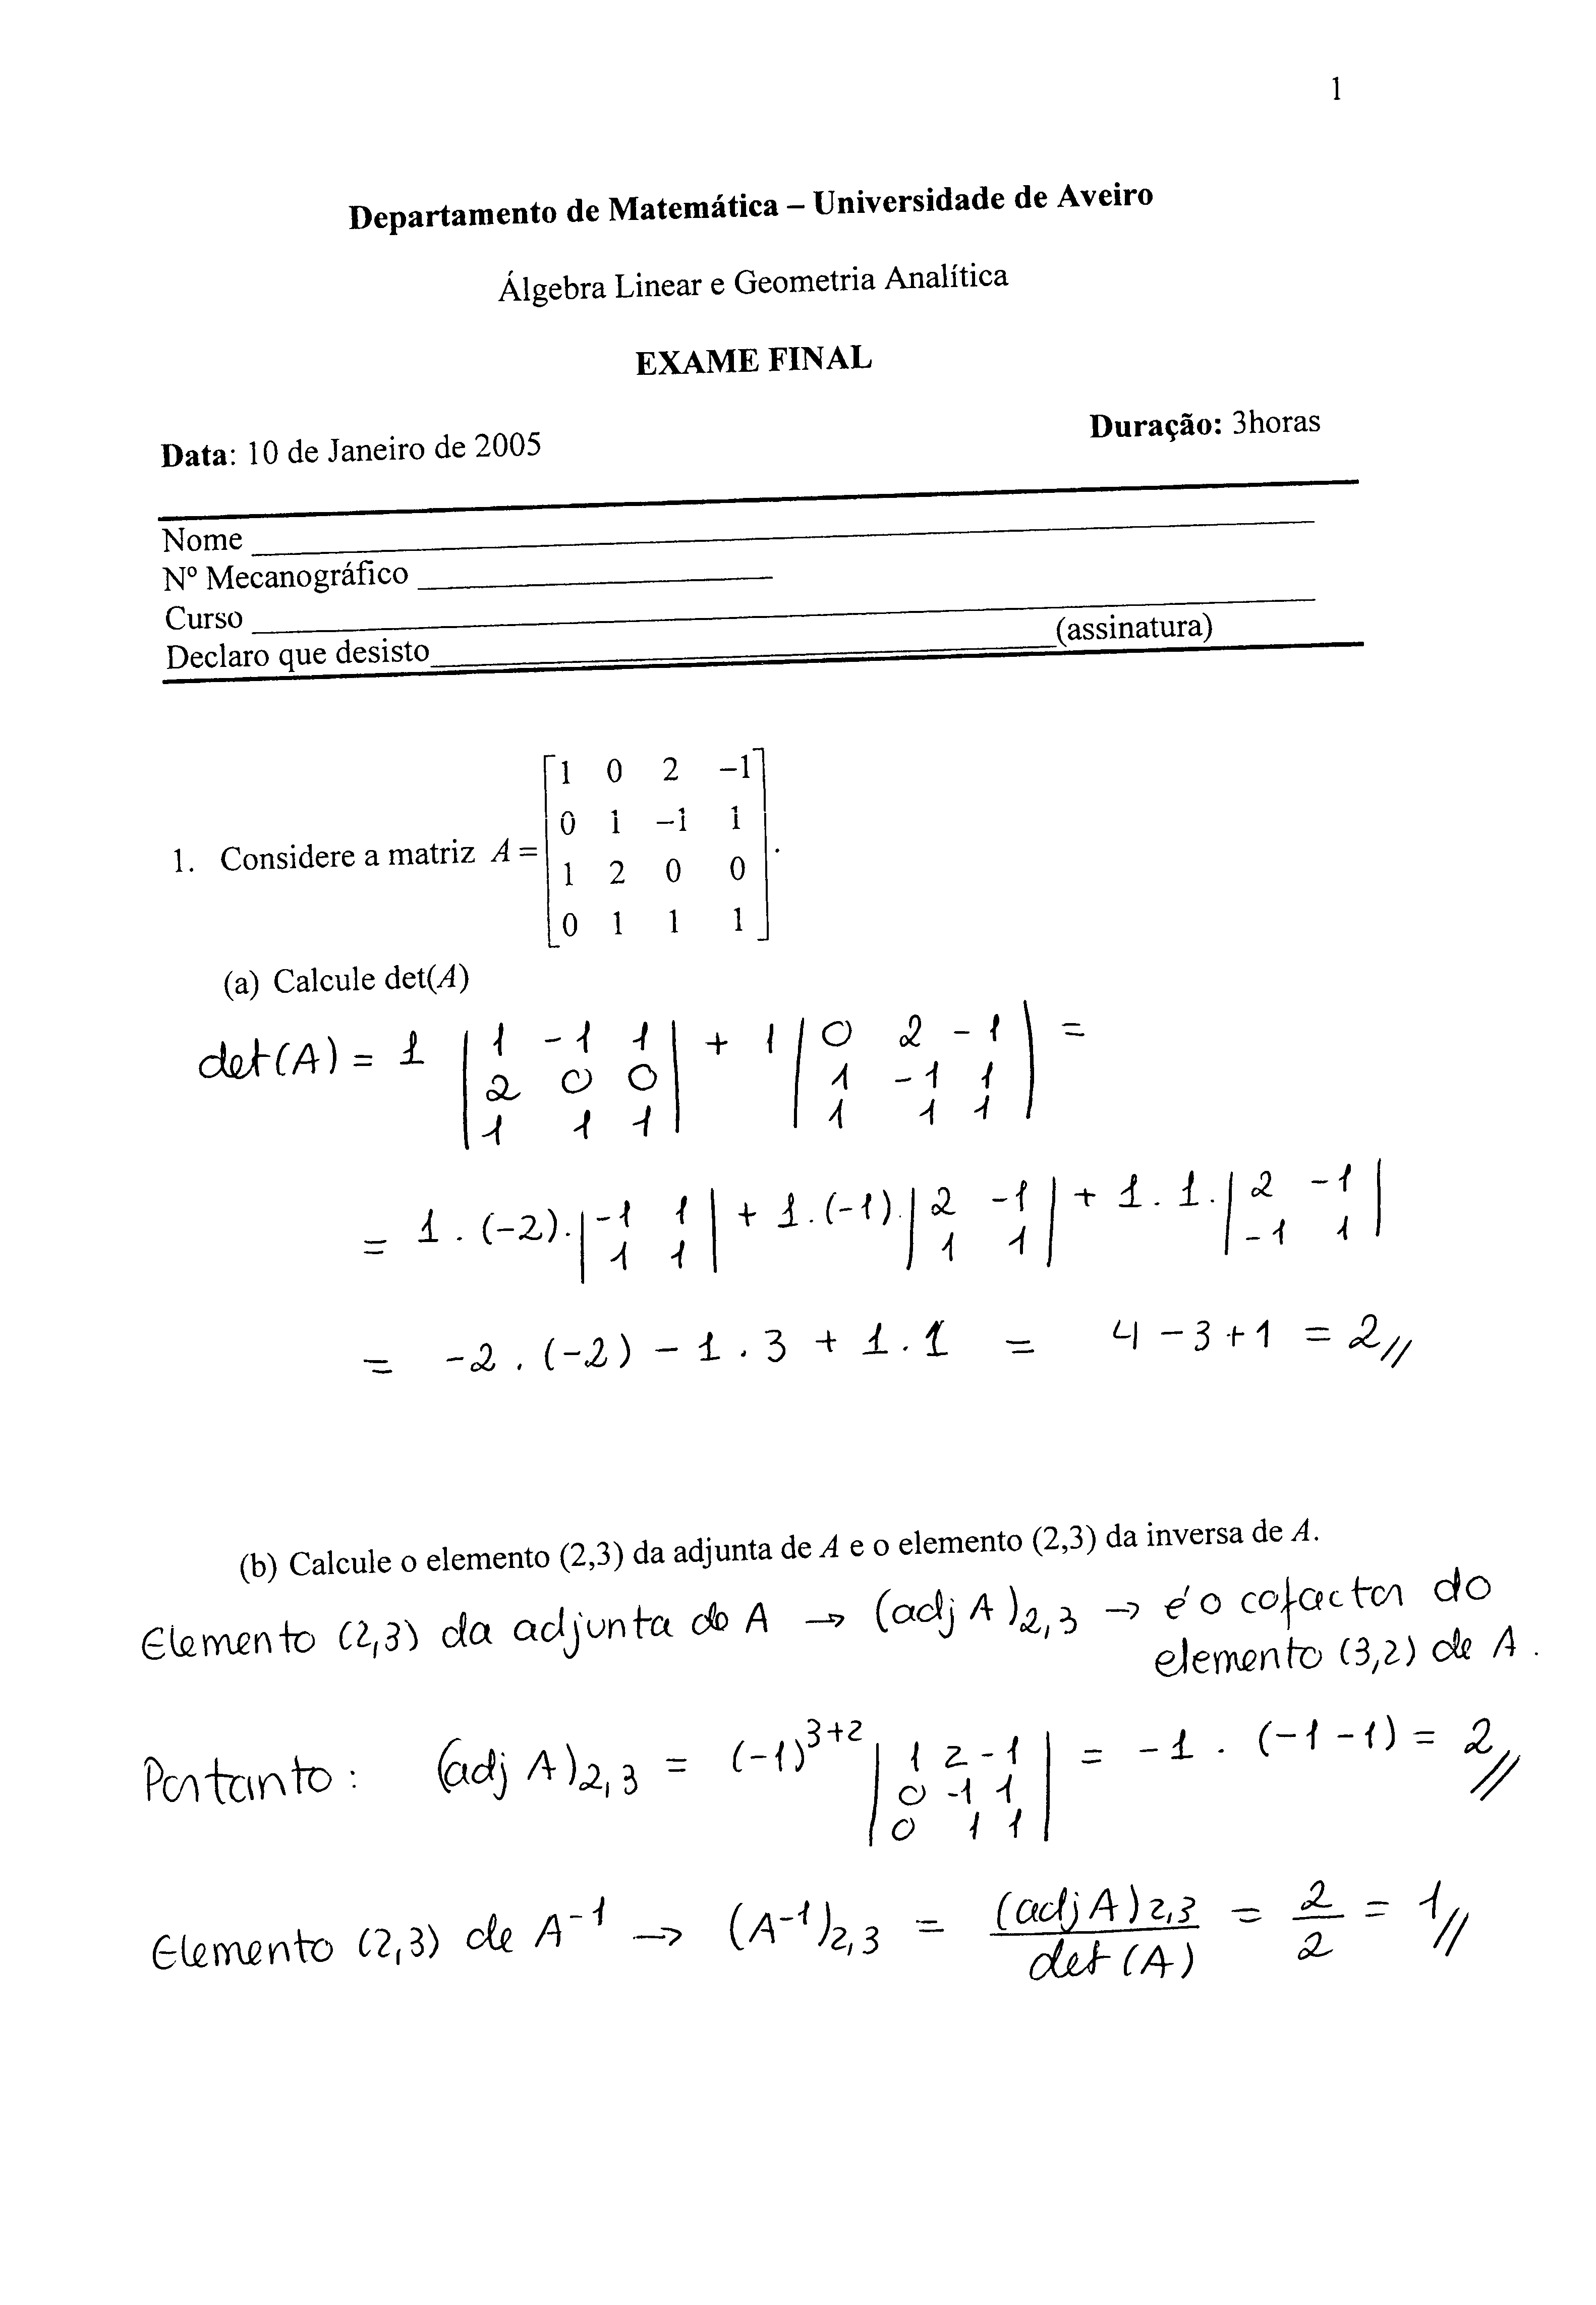 1
Departamento de Matemática – Universidade de Aveiro
Álgebra Linear e Geometria Analítica
EXAME FINAL
Data: 10 de Janeiro de 2005 Duração: 3horas
Nome
Nº Mecanográfico
Curso
Declaro que desisto (assinatura)
1 0 2 –1
0 1 –1 1
1. Considere a matriz A = .
1 2 0 0
0 1 1 1
(a) Calcule det(A)
det(A) = 1 | 1 -1 1 | + 1 | 0 2 -1 | =
2 0 0 1 -1 1
1 1 1 1 1 1
= 1 . (-2). | -1 1 | + 1. (-1). | 2 -1 | + 1 . 1. | 2 -1 |
1 1 1 1 -1 1
= -2 . (-2) - 1 . 3 + 1 . 1 = 4 - 3 + 1 = 2 //
(b) Calcule o elemento (2,3) da adjunta de A e o elemento (2,3) da inversa de A.
Elemento (2,3) da adjunta de A → (adj A)2,3 → é o cofactor do
elemento (3,2) de A .
Portanto : (adj A)2,3 = (-1)^3+2 | 1 2 -1 | = -1 . (-1 -1) = 2 //
0 -1 1
0 1 1
Elemento (2,3) de A^-1 → (A^-1)2,3 = (adj A)2,3 / det (A) = 2/2 = 1 //